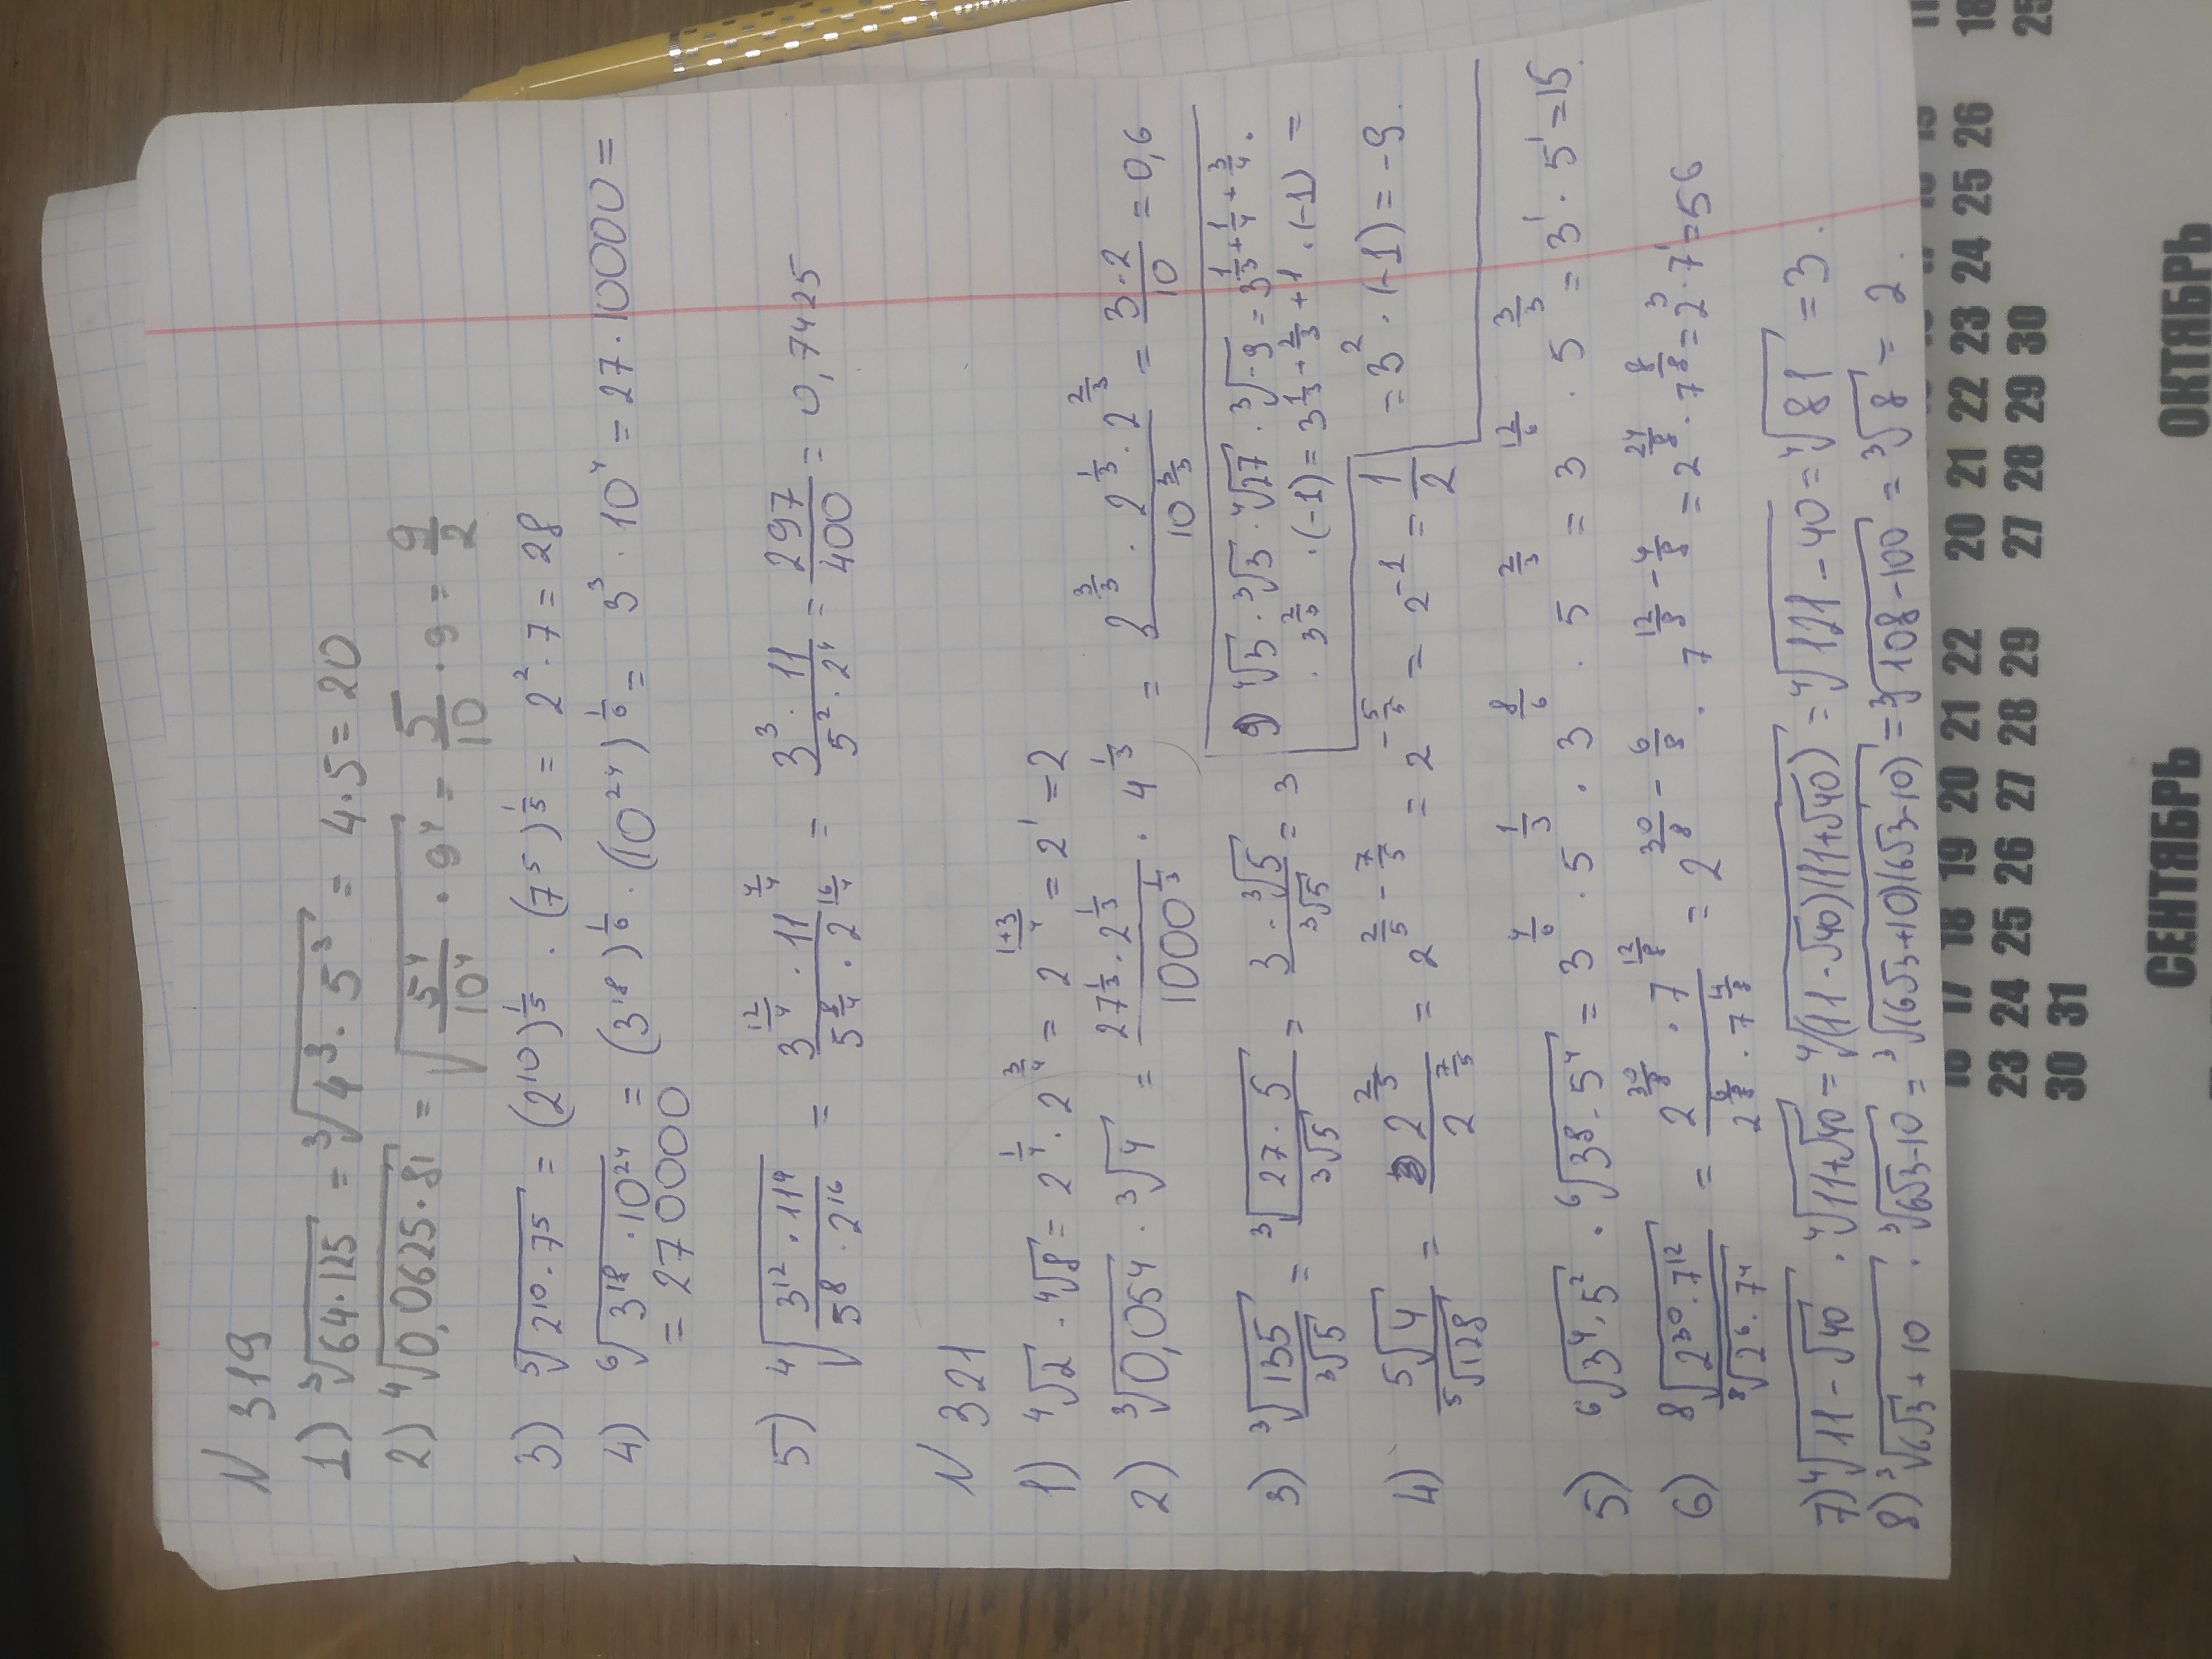 N 319
1) ³√64·125 = ³√4³·5³ = 4·5=20
2) ⁴√0,0625·81 = √5⁴/10⁴ · 9⁴ = 5/10 · 9 = 9/2
3) ⁵√2¹⁰·7⁵ = (2¹⁰)^1/5 · (7⁵)^1/5 = 2²·7=28
4) ⁶√3¹⁸·10²⁴ = (3¹⁸)^1/6 · (10²⁴)^1/6 = 3³·10⁴=27·10000=
= 270000
5) ⁴√3¹²·11⁴/5⁸·2¹⁶ = 3^12/4 · 11^4/4 / 5^8/4 · 2^16/4 = 3³·11/5²·2⁴ = 297/400 = 0,7425
N 321
1) ⁴√2 · ⁴√8 = 2^1/4 · 2^3/4 = 2^1+3/4 = 2¹=2
2) ³√0,054 · ³√4 = 27^1/3 · 2^1/3 / 1000^1/3 · 4^1/3 = 3^3/3 · 2^1/3 · 2^2/3 / 10^3/3 = 3·2/10 = 0,6
3) ³√135/³√5 = ³√27·5/³√5 = 3·³√5/³√5 = 3
9) ⁴√3 · ³√3 · ⁴√27 · ³√-9 = 3^1/3+1/4+3/4 ·
· 3^2/3 · (-1) = 3^1/3+2/3+1 · (-1) =
= 3² · (-1) = -9.
4) ⁵√4/⁵√128 = 2^2/5 / 2^7/5 = 2^2/5-7/5 = 2^-5/5 = 2⁻¹ = 1/2
5) ⁶√3⁴·5² · ⁶√3⁸·5⁴ = 3^4/6 · 5^1/3 · 3^8/6 · 5^2/3 = 3^12/6 · 5^3/3 = 3¹·5¹=15.
6) ⁸√2³⁰·7¹²/⁸√2⁶·7⁴ = 2^30/8 · 7^12/8 / 2^6/8 · 7^4/8 = 2^30/8-6/8 · 7^12/8-4/8 = 2^24/8 · 7^8/8 = 2³·7¹=56
7) ⁴√11-√40 · ⁴√11+√40 = ⁴√(11-√40)(11+√40) = ⁴√121-40 = ⁴√81 = 3.
8) ³√6√3+10 · ³√6√3-10 = ³√(6√3+10)(6√3-10) = ³√108-100 = ³√8 = 2.
17 18 19 20 21 22
20 21 22 23 24 25 26
23 24 25 26 27 28 29
27 28 29 30
30 31
18
25
СЕНТЯБРЬ
ОКТЯБРЬ